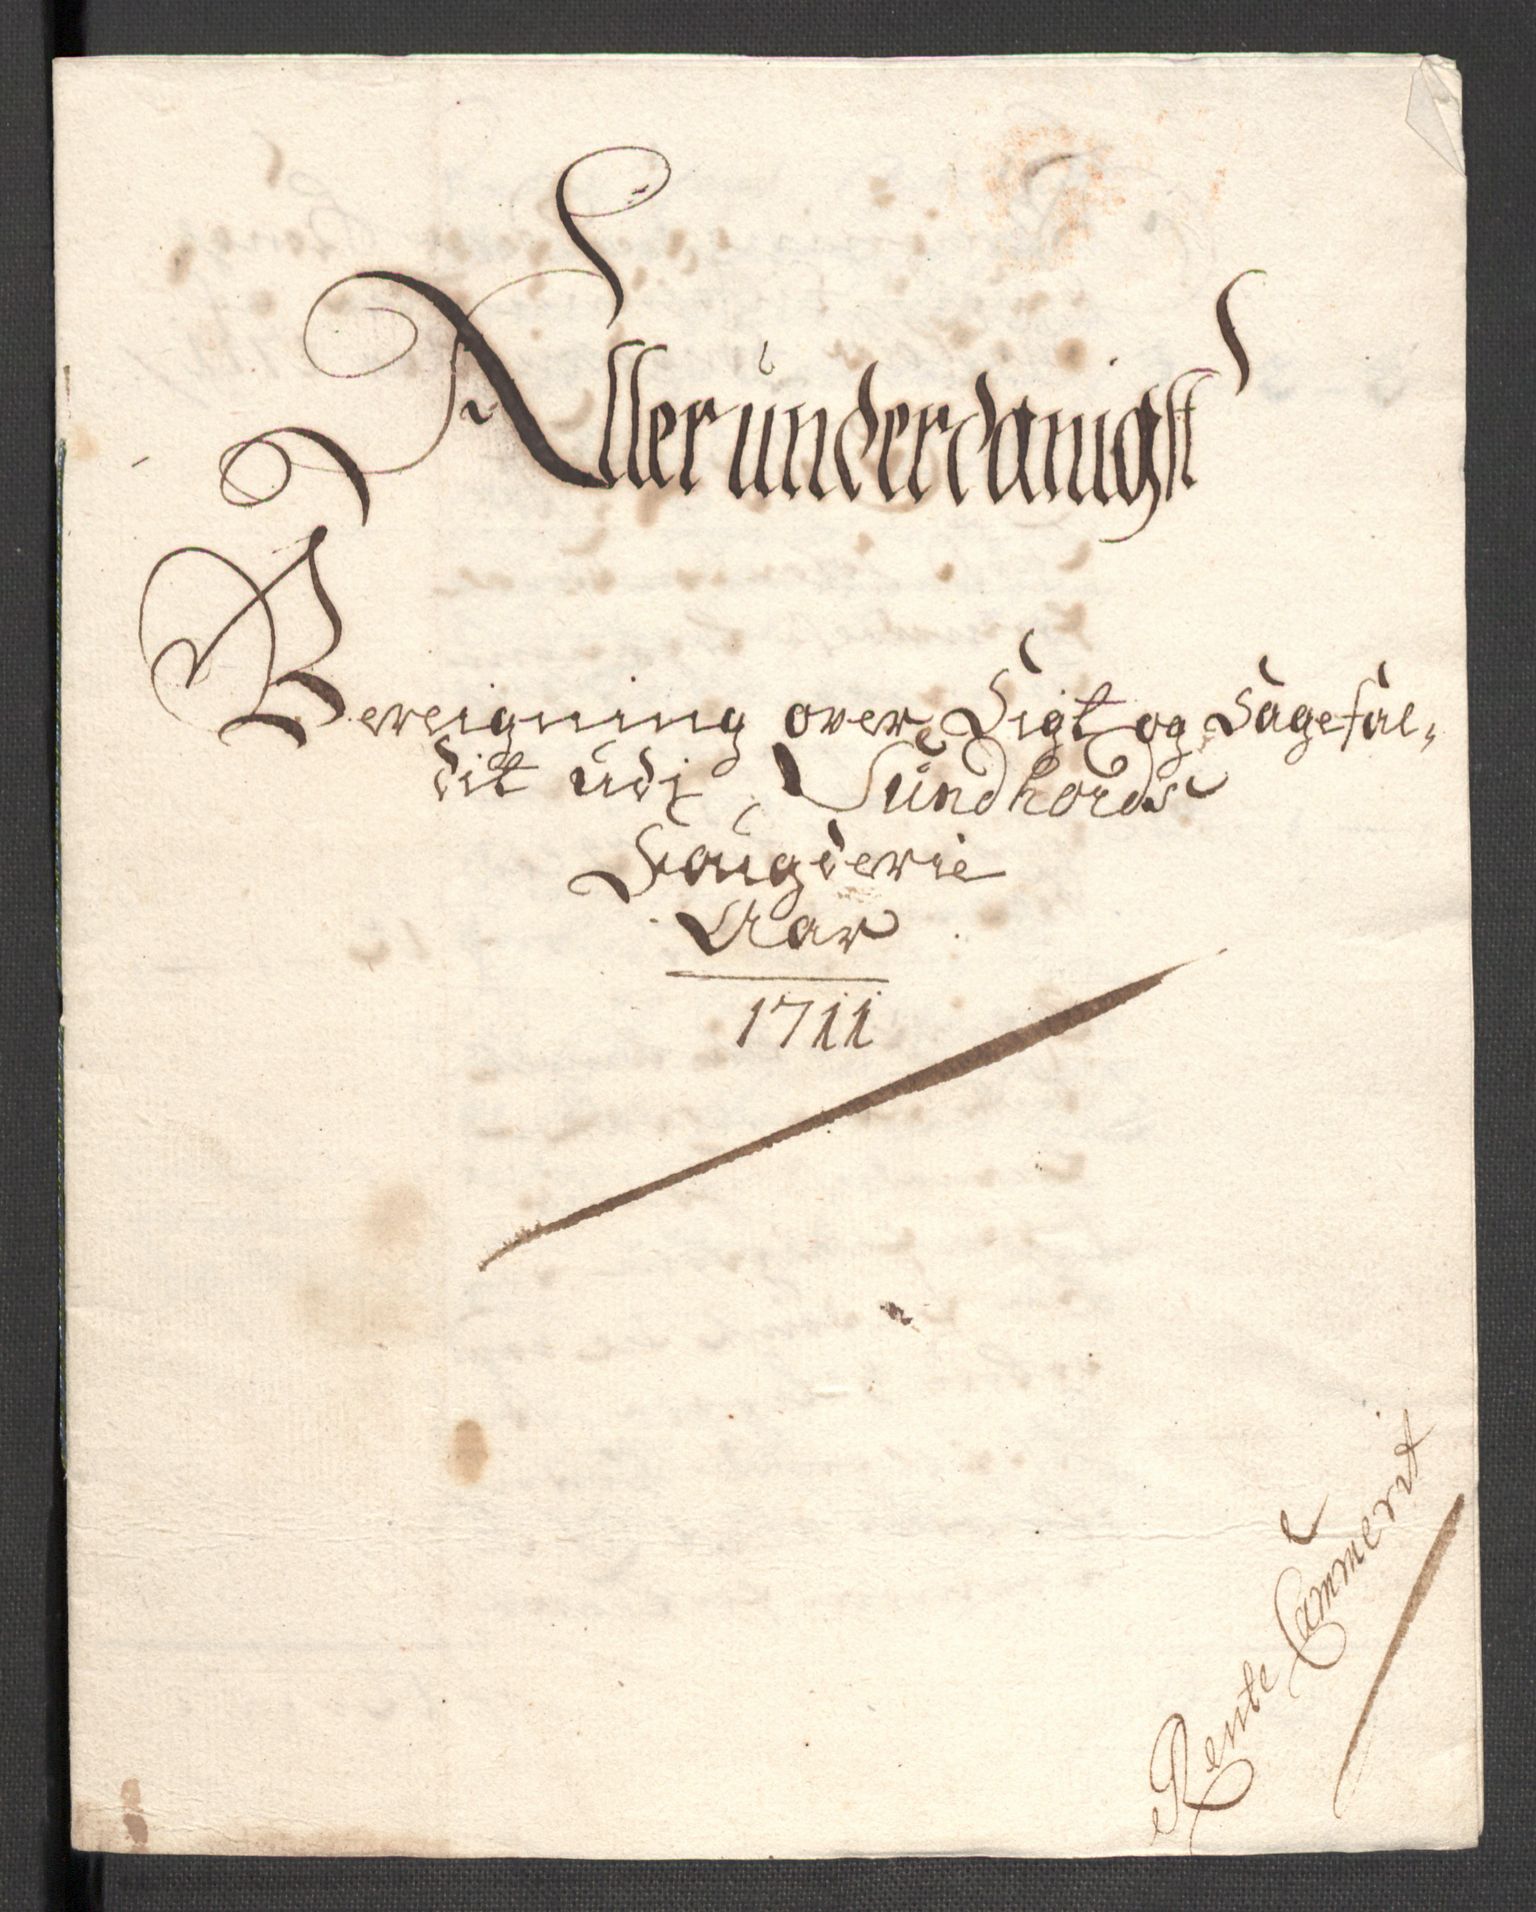 Alleründerdanigst
Bereigning over Sigt og Sagefal-
dit üdj Sündhords
Fougderie
Aar
1711
Rente Cammerit